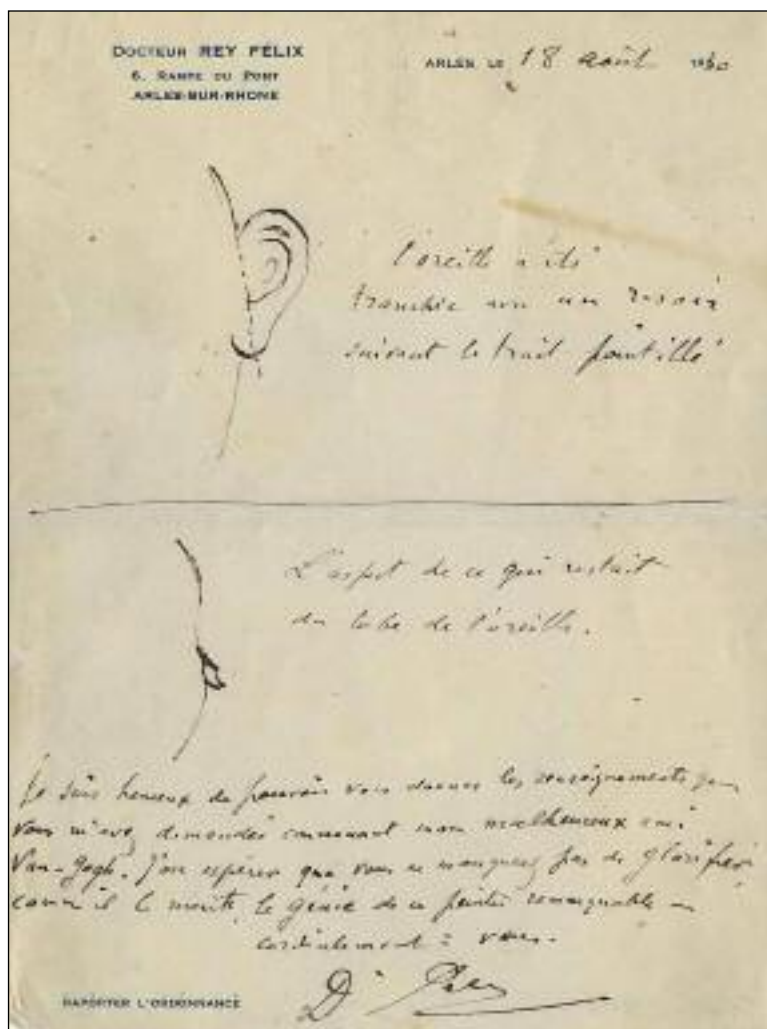 DOCTEUR REY FÉLIX
6, RAMPE DU PONT
ARLES-SUR-RHONE
ARLES LE 18 août 1930
l'oreille a été
tranchée avec un rasoir
suivant le trait pointillé
L'aspect de ce qui restait
du lobe de l'oreille.
Je suis heureux de pouvoir vous donner les renseignements que
vous m'avez demandés concernant mon malheureux ami
Van-Gogh. J'ose espérer que vous ne manquerez pas de glorifier
comme il le mérite, le génie de ce peintre remarquable
cordialement à vous.
Dr Rey
RAPORTER L'ORDONNANCE